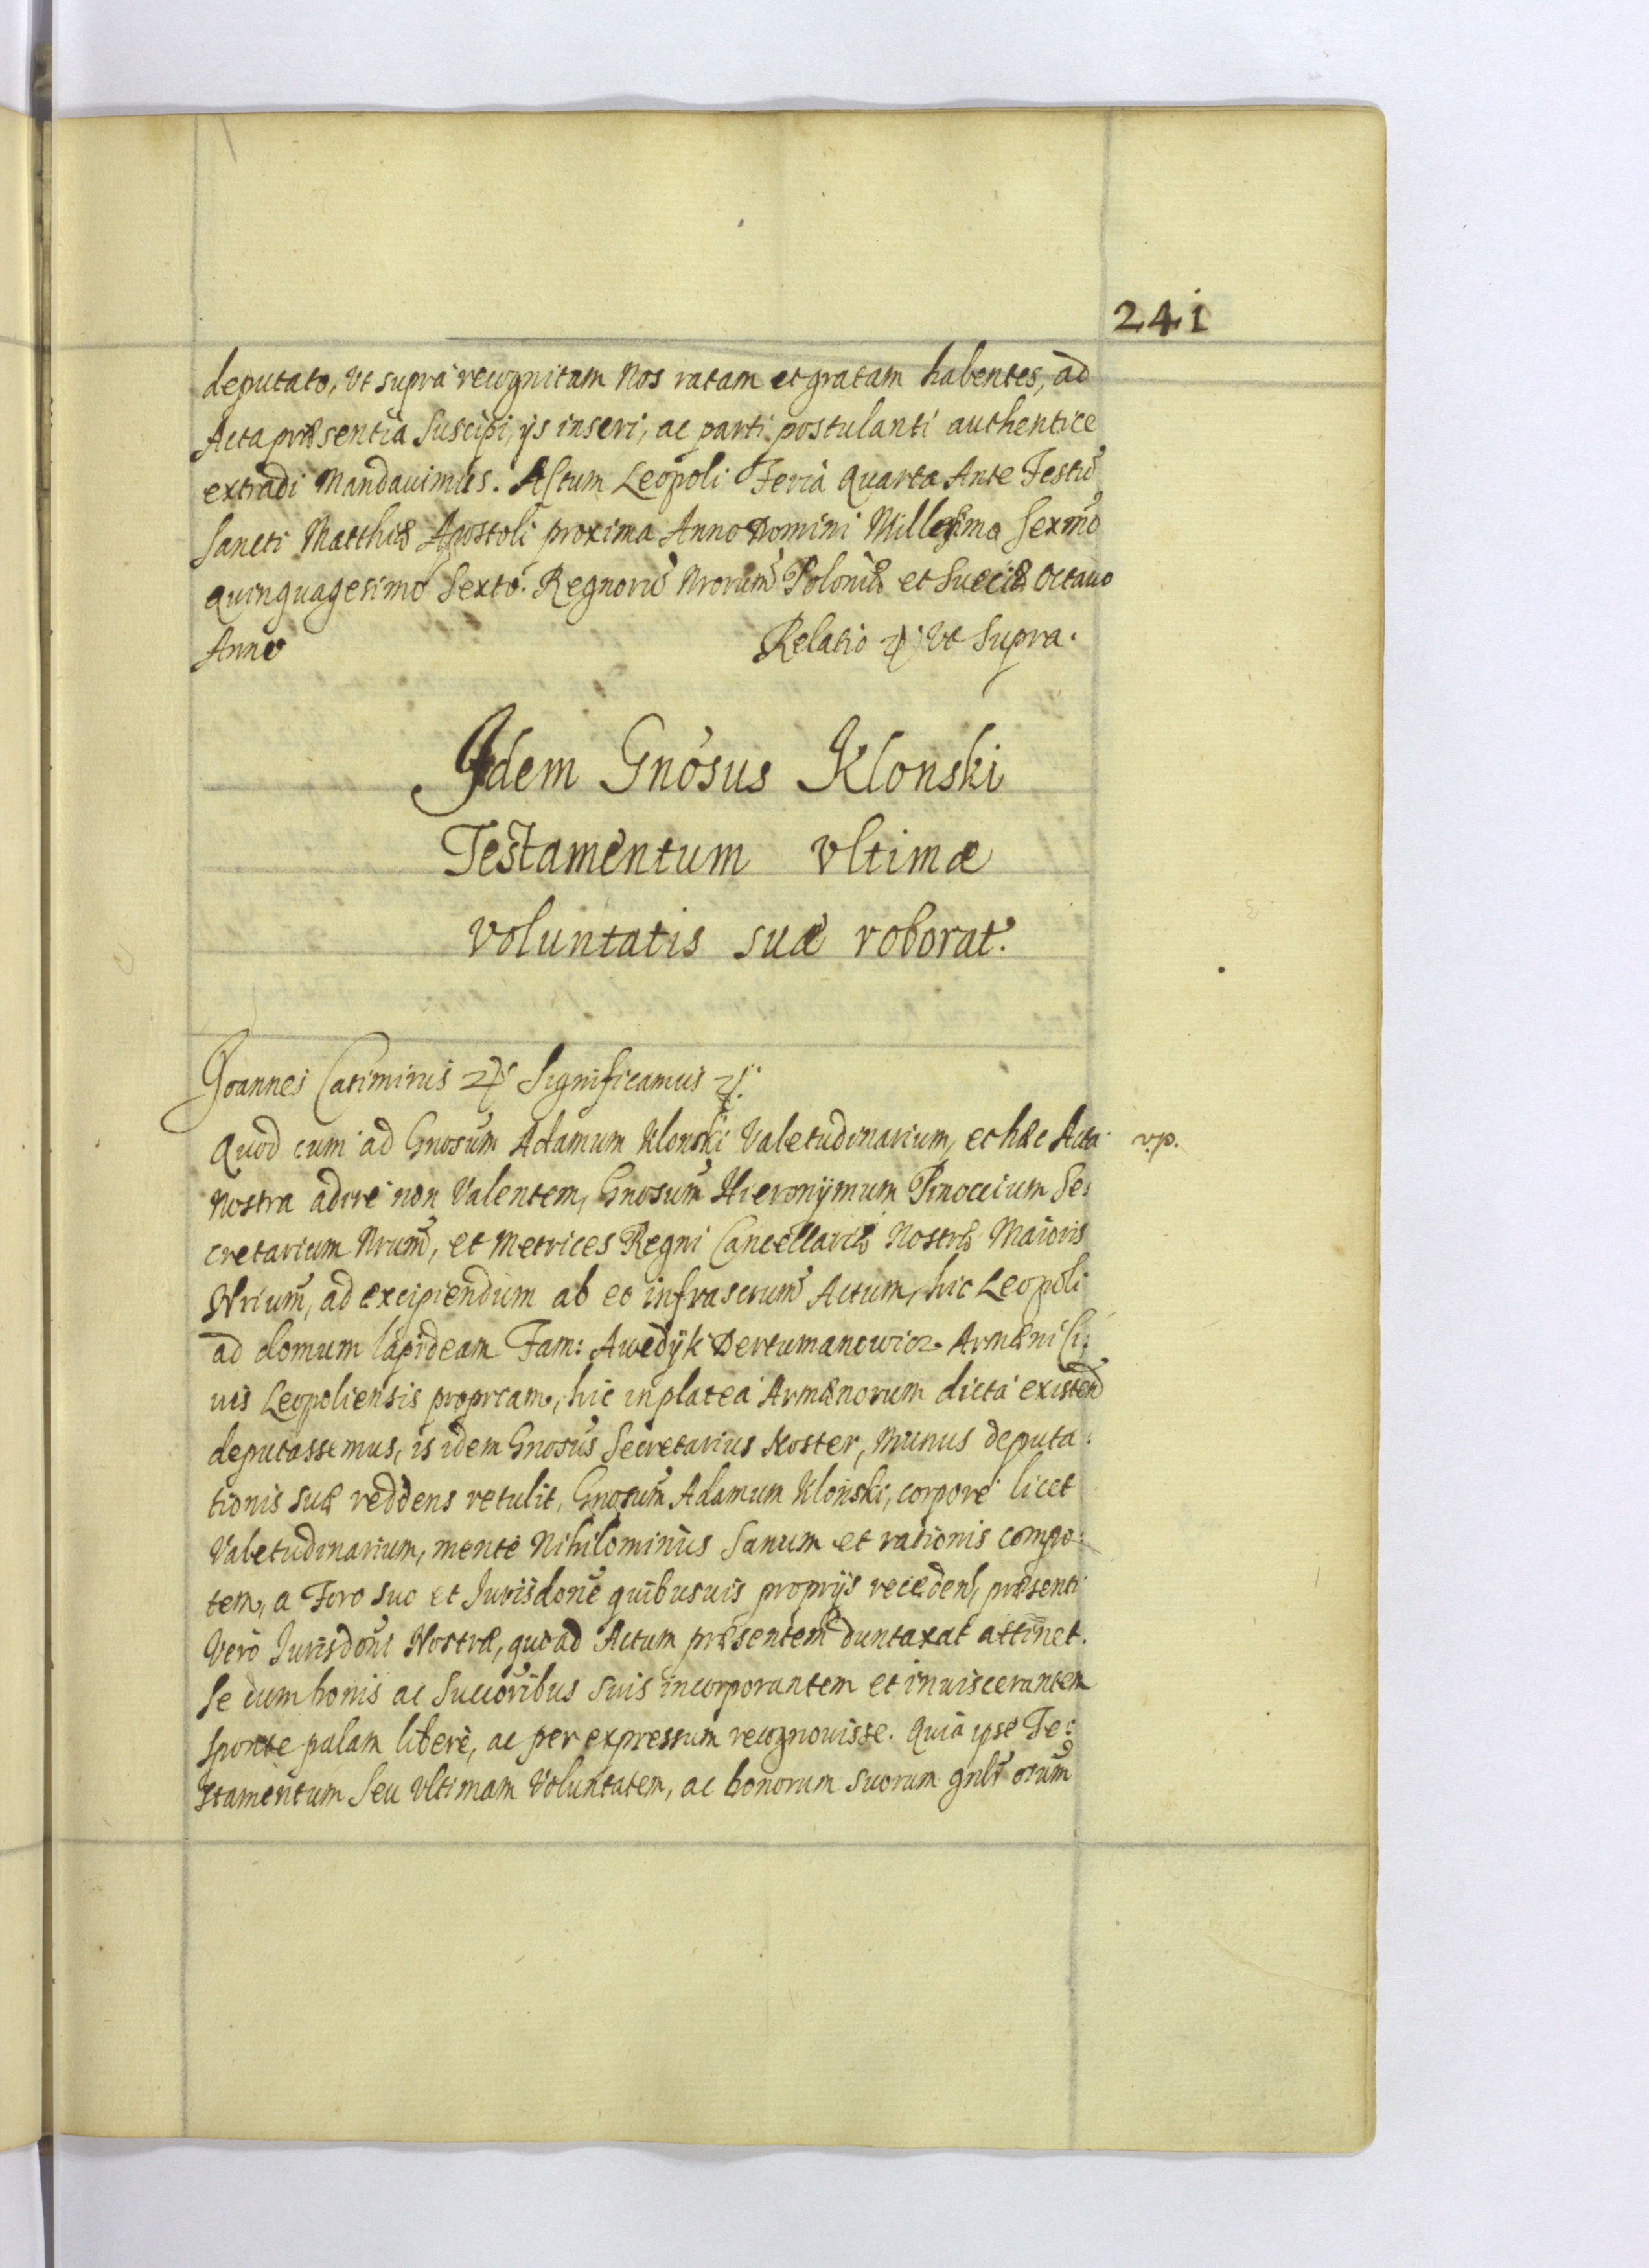 241
deputato, Vt supra recognitam Nos ratam et gratam habentes, ad
Acta præsentia Suscipi, ijs inseri, ac parti postulanti authentice
extradi Mandavimus. Actum Leopoli Feria Quarta Ante Festũ
Sancti Matthiæ Apostoli proxima Anno Domini Millesimo Sexmõ
Quinquagesimo Sexto. Regnorũ Nrorum̃ Poloniæ et Sueciæ Octauo
Anno Relatio Vt Supra.
Idem Gnosus Klonski
Testamentum vltimæ
voluntatis suæ roborat.
Joannes Casimirus Significamus
Quod cum ad Gnosum̃ Adamum Klonski Valetudinarium, et hæc Acta v.p.
Nostra adire non Valentem, Gnosum̃ Hieronÿmum Pinoccium Se:
cretarium Nrum̃, et Metrices Regni Cancellariæ Nostræ Maioris
Nrium̃, ad excipiendum ab eo infrascrum̃ Actum, hic Leopoli
ad domum lapideam Fam: Awedÿk Dertumanowicz Armæni Ci:
uis Leopoliensis propriam, hic in platea Armænorum dicta existend
deputassemus, is idem Gnosus̃ Secretarius Noster, Munus deputa:
tionis suæ reddens retulit, Gnosum̃ Adamum Klonski, corpore licet
Valetudinarium, mente Nihilominus Sanum et rationis compo:
tem, a Foro suo et Jurisdone̴ quibusuis proprijs recedens, præsenti
Vero Jurisdoni̴ Nostræ, quoad Actum præsentem duntaxat attinet.
Se cum bonis ac Succoribus̃ suis incorporantem et inuiscerantem
Sponte palam libere, ac per expressum recognouisse. Quia ipse Te:
stamentum Seu Vltimam Voluntatem, ac bonorum suorum gnlr̃ oium̃